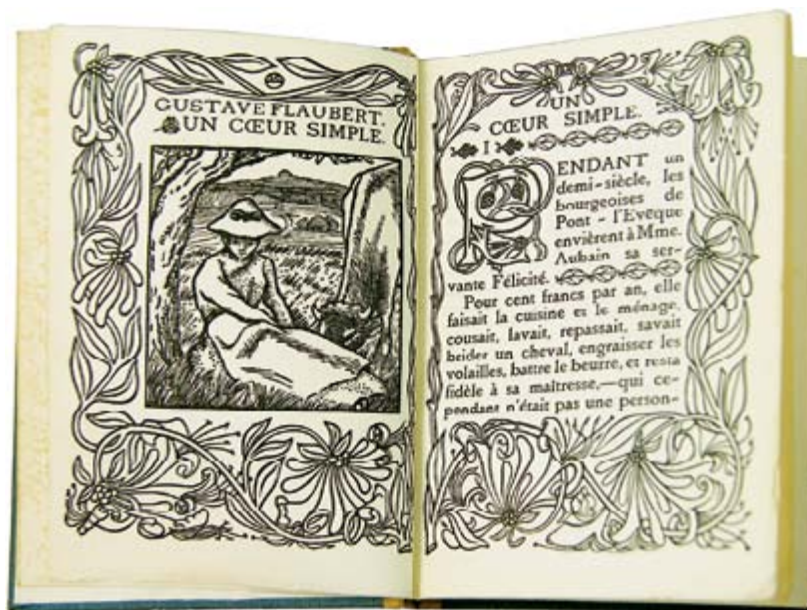 GUSTAVE FLAUBERT.
UN CŒUR SIMPLE.
UN
CŒUR SIMPLE.
I
PENDANT un
demi-siècle, les
bourgeoises de
Pont-l'Evêque
envièrent à Mme.
Aubain sa ser-
vante Félicité.
Pour cent francs par an, elle
faisait la cuisine et le ménage,
cousait, lavait, repassait, savait
brider un cheval, engraisser les
volailles, battre le beurre, et resta
fidèle à sa maîtresse,—qui ce-
pendant n'était pas une person-